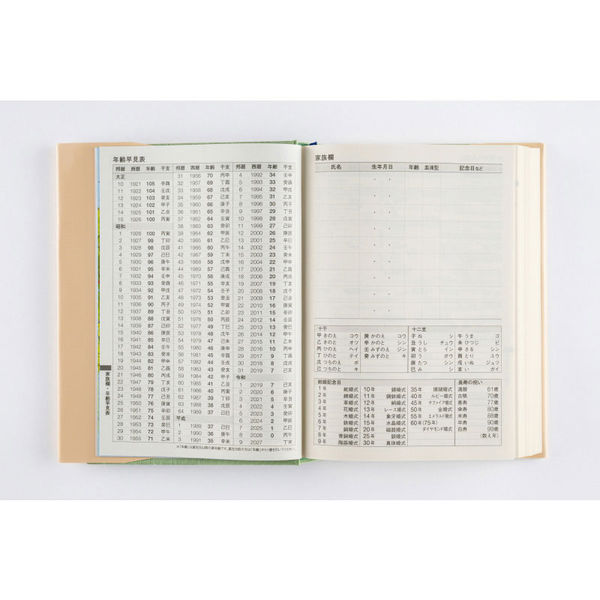 年齢早見表
邦暦 西暦 年齢 干支
大正
10 1921 105 辛酉
11 1922 104 壬戌
12 1923 103 癸亥
13 1924 102 甲子
14 1925 101 乙丑
15 1926 100 丙寅
昭和
1 1926 100 丙寅
2 1927 99 丁卯
3 1928 98 戊辰
4 1929 97 己巳
5 1930 96 庚午
6 1931 95 辛未
7 1932 94 壬申
8 1933 93 癸酉
9 1934 92 甲戌
10 1935 91 乙亥
11 1936 90 丙子
12 1937 89 丁丑
13 1938 88 戊寅
14 1939 87 己卯
15 1940 86 庚辰
16 1941 85 辛巳
17 1942 84 壬午
18 1943 83 癸未
19 1944 82 甲申
20 1945 81 乙酉
21 1946 80 丙戌
22 1947 79 丁亥
23 1948 78 戊子
24 1949 77 己丑
25 1950 76 庚寅
26 1951 75 辛卯
27 1952 74 壬辰
28 1953 73 癸巳
29 1954 72 甲午
30 1955 71 乙未
邦暦 西暦 年齢 干支
31 1956 70 丙申
32 1957 69 丁酉
33 1958 68 戊戌
34 1959 67 己亥
35 1960 66 庚子
36 1961 65 辛丑
37 1962 64 壬寅
38 1963 63 癸卯
39 1964 62 甲辰
40 1965 61 乙巳
41 1966 60 丙午
42 1967 59 丁未
43 1968 58 戊申
44 1969 57 己酉
45 1970 56 庚戌
46 1971 55 辛亥
47 1972 54 壬子
48 1973 53 癸丑
49 1974 52 甲寅
50 1975 51 乙卯
51 1976 50 丙辰
52 1977 49 丁巳
53 1978 48 戊午
54 1979 47 己未
55 1980 46 庚申
56 1981 45 辛酉
57 1982 44 壬戌
58 1983 43 癸亥
59 1984 42 甲子
60 1985 41 乙丑
61 1986 40 丙寅
62 1987 39 丁卯
63 1988 38 戊辰
64 1989 37 己巳
平成
1 1989 37 己巳
2 1990 36 庚午
3 1991 35 辛未
邦暦 西暦 年齢 干支
4 1992 34 壬申
5 1993 33 癸酉
6 1994 32 甲戌
7 1995 31 乙亥
8 1996 30 丙子
9 1997 29 丁丑
10 1998 28 戊寅
11 1999 27 己卯
12 2000 26 庚辰
13 2001 25 辛巳
14 2002 24 壬午
15 2003 23 癸未
16 2004 22 甲申
17 2005 21 乙酉
18 2006 20 丙戌
19 2007 19 丁亥
20 2008 18 戊子
21 2009 17 己丑
22 2010 16 庚寅
23 2011 15 辛卯
24 2012 14 壬辰
25 2013 13 癸巳
26 2014 12 甲午
27 2015 11 乙未
28 2016 10 丙申
29 2017 9 丁酉
30 2018 8 戊戌
31 2019 7 己亥
令和
1 2019 7 己亥
2 2020 6 庚子
3 2021 5 辛丑
4 2022 4 壬寅
5 2023 3 癸卯
6 2024 2 甲辰
7 2025 1 乙巳
8 2026 0 丙午
9 2027 丁未
家族欄・年齢早見表
家族欄
氏名 生年月日 年齢 血液型 記念日など
十干
甲 きのえ コウ 庚 かのえ コウ
乙 きのと オツ 辛 かのと シン
丙 ひのえ ヘイ 壬 みずのえ ジン
丁 ひのと テイ 癸 みずのと キ
戊 つちのえ ボ
己 つちのと キ
十二支
子 ね シ 午 うま ゴ
丑 うし チュウ 未 ひつじ ビ
寅 とら イン 申 さる シン
卯 う ボウ 酉 とり ユウ
辰 たつ シン 戌 いぬ ジュツ
巳 み シ 亥 い ガイ
結婚記念日
1年 紙婚式 10年 錫婚式 35年 珊瑚婚式
2年 綿婚式 11年 鋼鉄婚式 40年 ルビー婚式
3年 革婚式 12年 絹婚式 45年 サファイア婚式
4年 花婚式 13年 レース婚式 50年 金婚式
5年 木婚式 14年 象牙婚式 55年 エメラルド婚式
6年 鉄婚式 15年 水晶婚式 60年(75年)
7年 銅婚式 20年 磁器婚式 ダイヤモンド婚式
8年 青銅婚式 25年 銀婚式
9年 陶器婚式 30年 真珠婚式
長寿の祝い
還暦 61歳
古稀 70歳
喜寿 77歳
傘寿 80歳
米寿 88歳
卒寿 90歳
白寿 99歳
(数え年)